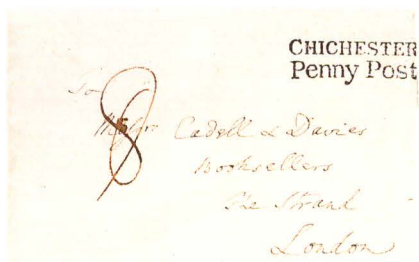 CHICHESTER
Penny Post
To
8
Messrs Cadell & Davies
Booksellers
The Strand
London